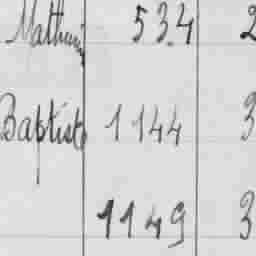 Mathurin 534 2
Baptiste 1144 3
1149 3